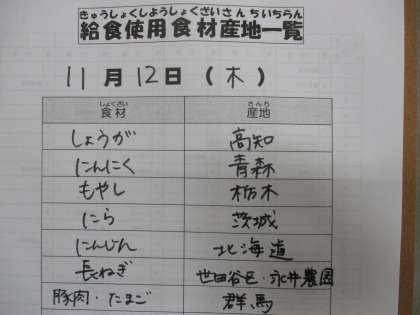 きゅうしょくしようしょくざいさんちいちらん
給食使用食材産地一覧
11月12日(木)
しょくざい さんち
食材 産地
しょうが 高知
にんにく 青森
もやし 栃木
にら 茨城
にんじん 北海道
長ねぎ 世田谷区・永井農園
豚肉・たまご 群馬